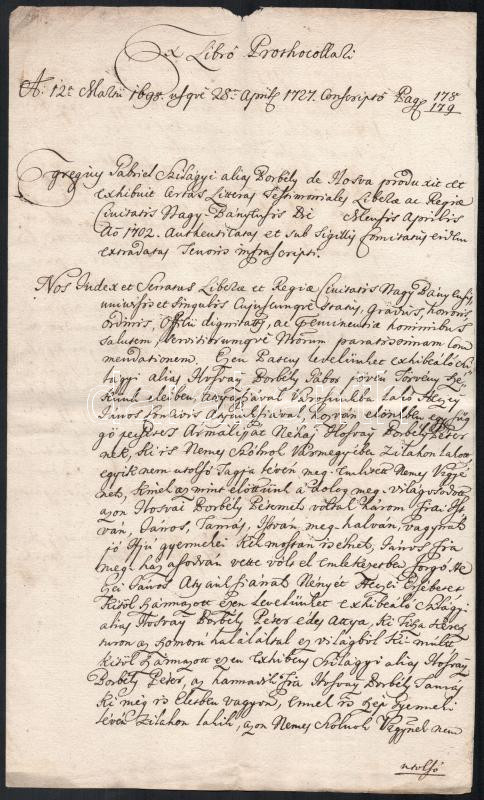 Ex Libro Prothocollari
A: 12 Martii 1698. usque 28 April 1727. Conscripto Pag 178
179
Egregius Gabriel Szilágyi alias Borbély de Hosva produxit et
exhibuit certas Litteras Testimoniales Liberae ac Regiae
Civitatis Nagy-Bányensis Die Mensis Aprilis
Ao 1702. Authenticatas et sub Sigillis Comitatus
extradatas Tenoris infrascripti.
Nos Judex et Senatus Liberae et Regiae Civitatis Nagy Bányensis
universis et singulis Cujuscunque status, Gradus, honoris
ordinis, Officii dignitatis, ac Praeeminentiae hominibus
Salutem, Servitiorumque Nostrorum paratissimam Com
mendationem. Ezen Patens levelünket exhibeáló Szi
lágyi alias Hosvay Borbély Gábor jöven Törvény Szé
künk eleiben, Városunkba lakó
János hozván előnkben
Ármálissát Néhai Hosvay Borbély Péter
nek, ki is Nemes Szolnok Vármegyében Zilahon lakott
egyik nem utolsó Tagja lévén meg Emlitett Nemes Vgye
nek, kinek az mint előttünk a dolog meg világosodott
azon Hosvai Borbély Péternek voltak három Fiai Ist
ván, János, Tamás, István meg halván, vagynak
jó Ifjú gyermekei kik mostan is élnek, János Fia
meg házasodván vette volt el Emlékezetben forgó
János Atyánkfiának Nénjét Erzsébetet
Kitől származott ezen Levelünket exhibeáló Szilágyi
alias Hosvay Borbély Péter edes Attya, ki
az szomorú halál által ez világból ki múlt
kitől származott ezen Exhibens Szilágyi alias Hosvay
Borbély Péter, az harmadik Fia Hosvay Borbély Tamás
ki még is életben vagyon, Ennek is szép Gyermeki
lévén Zilahon lakik, azon Nemes Szolnok Vgynek nem
utolsó